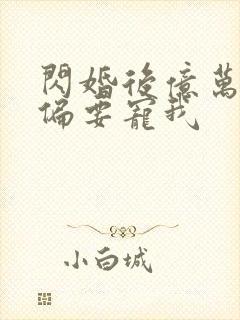 閃婚後億萬
偏要寵我
小白城